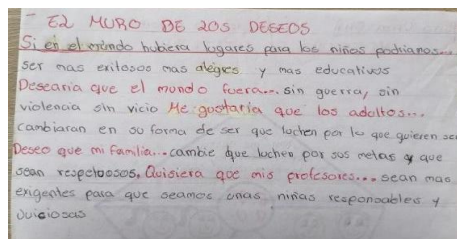 EL MURO DE LOS DESEOS
Si en el mundo hubiera lugares para los niños podriamos...
ser mas exitosos mas alegres y mas educativos
Desearia que el mundo fuera... sin guerra, sin
violencia sin vicio Me gustaria que los adoltos...
cambiaran en su forma de ser que luchen por lo que quieren ser
Deseo que mi familia... cambie que luchen por sus metas y que
sean respetuosos. Quisiera que mis profesores... sean mas
exigentes para que seamos unas niñas responsables y
Juiciosas